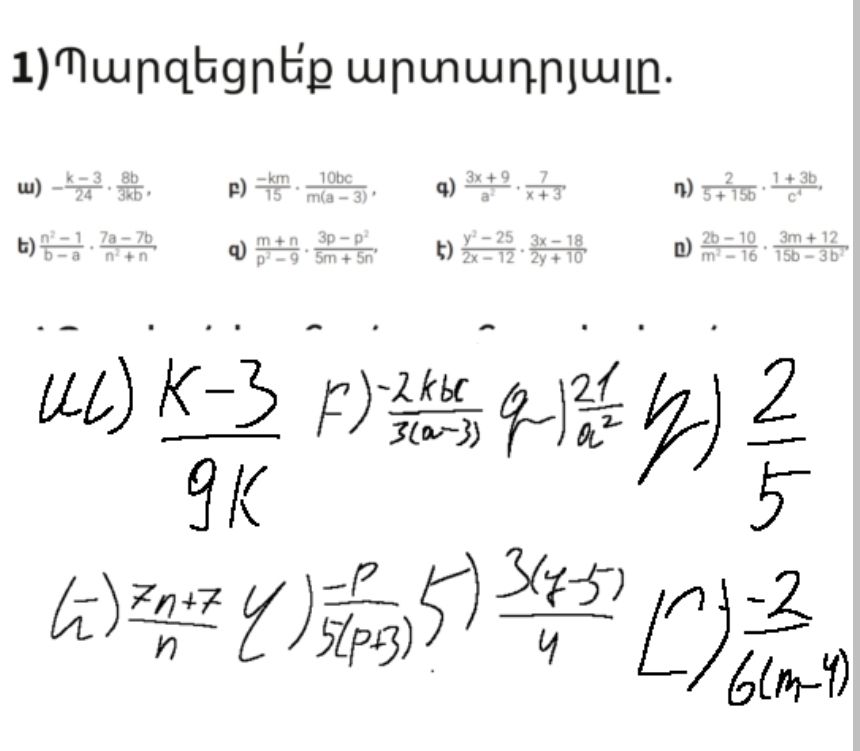 1)Պարզեցրե՛ք արտադրյալը.
ա) -\frac{k-3}{24} \cdot \frac{8b}{3kb}, բ) \frac{-km}{15} \cdot \frac{10bc}{m(a-3)}, գ) \frac{3x+9}{a^2} \cdot \frac{7}{x+3}, դ) \frac{2}{5+15b} \cdot \frac{1+3b}{c^4},
ե) \frac{n^2-1}{b-a} \cdot \frac{7a-7b}{n^2+n}, զ) \frac{m+n}{p^2-9} \cdot \frac{3p-p^2}{5m+5n}, է) \frac{y^2-25}{2x-12} \cdot \frac{3x-18}{2y+10}, ը) \frac{2b-10}{m^2-16} \cdot \frac{3m+12}{15b-3b^2},
ա) \frac{k-3}{9k} բ) \frac{-2kbc}{3(a-3)} գ) \frac{21}{a^2} դ) \frac{2}{5}
ե) \frac{7n+7}{n} զ) \frac{-p}{5(p+3)} է) \frac{3(y-5)}{4} ը) \frac{-2}{6(m-4)}